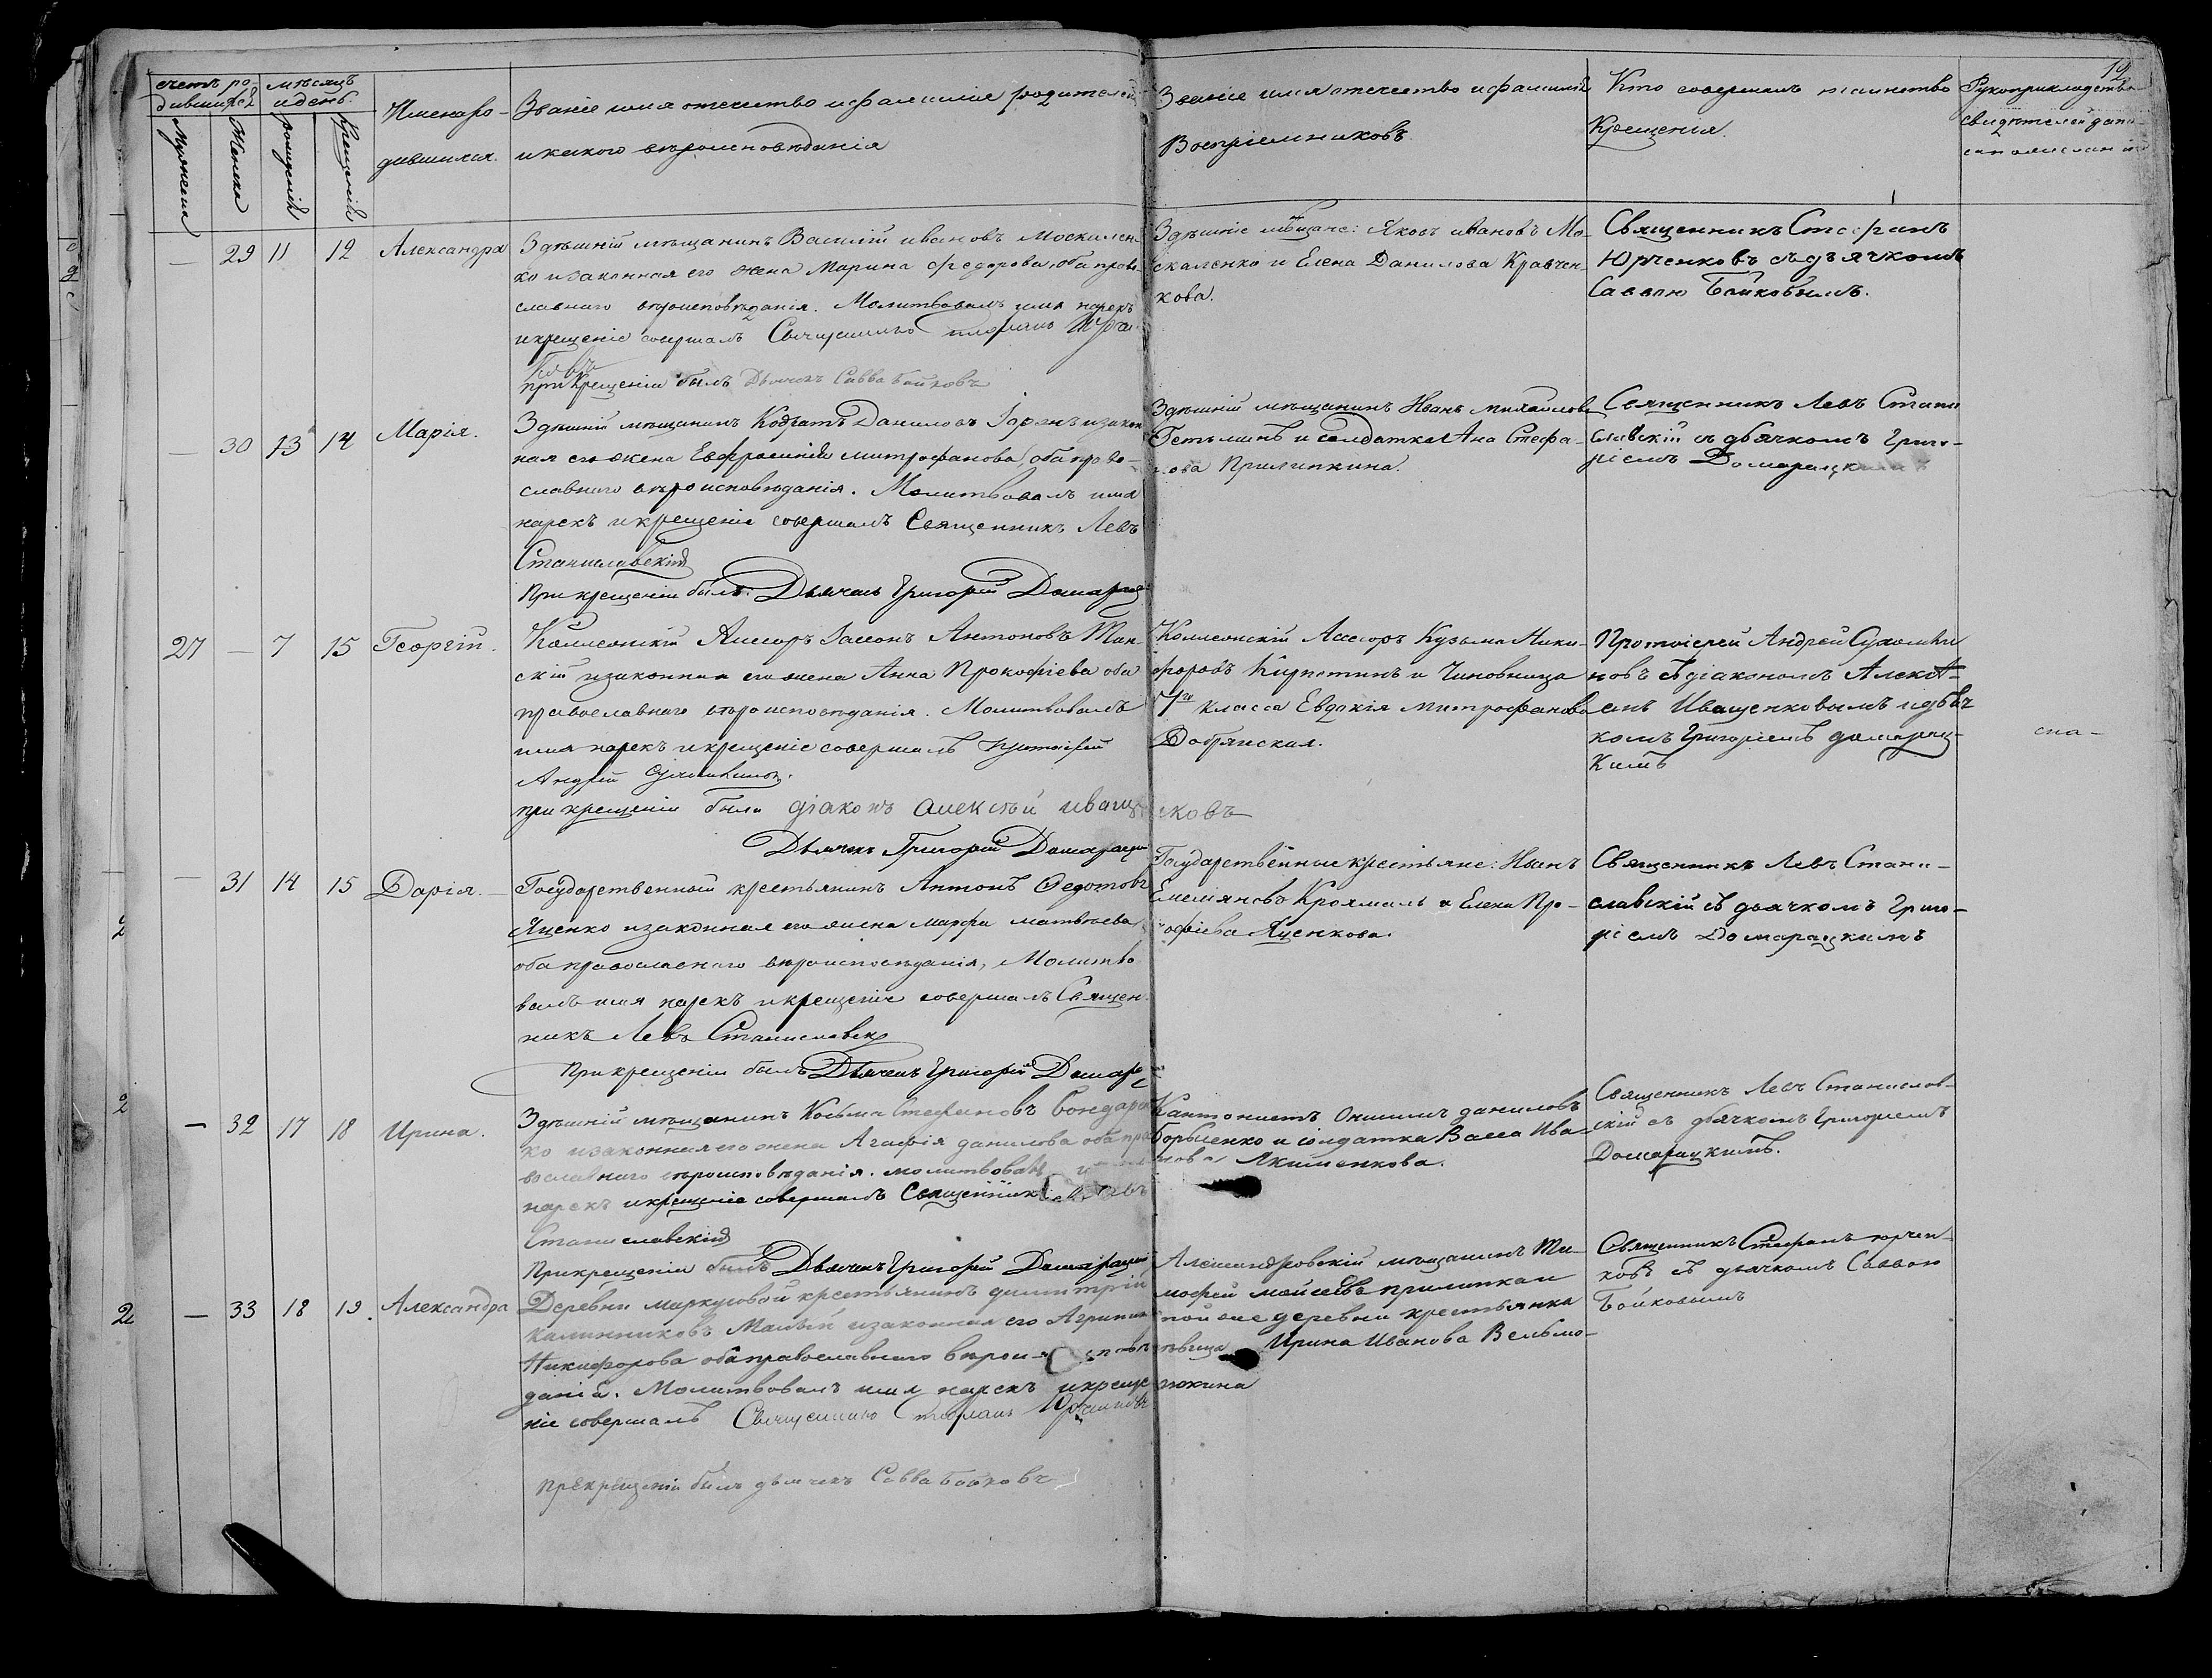 12
счетъ ро-
дившихся
мѣсяцъ
и день.
Имена ро-
дившихся.
Званіе имя отечество и фамилія родителей
и какого вѣроисповѣданія
Званіе имя отечество и фамилія
Воспріемниковъ
Кто совершалъ таинство
Крещенія.
Рукоприкладство
свидѣтелей
Мужеска
Женска
рожденій
Крещеній
— 29 11 12 Александра
Здѣшній мѣщанинъ Василій ивановъ Москален-
ко и законная его жена Марина федорова, оба право-
славнаго вѣроисповѣданія. Молитвовалъ имя нарекъ
и крещеніе совершалъ Священникъ
при Крещеніи былъ Дьячокъ Савва Байковъ
Здѣшніе мѣщане: Яковъ ивановъ Мо-
скаленко и Елена Данилова Кравчен-
кова.
Священникъ Стефанъ
Юрченковъ съ дьячкомъ
Саввою Байковымъ.
— 30 13 14 Марія.
Здѣшній мѣщанинъ Кодратъ Даниловъ и закон
ная его жена Евфросинія митрофанова, оба право-
славнаго вѣроисповѣданія. Молитвовалъ имя
нарекъ и крещеніе совершалъ Священникъ Левъ
Станиславскій
При крещеніи былъ: Дьячокъ Григорій
Здѣшній мѣщанинъ Иванъ михайловъ
Гетьманъ и солдатка Ана Стефа-
нова Прилипкина.
Священникъ Левъ Стани
славскій съ дьячкомъ Григо-
ріемъ Домарацкимъ
27 — 7 15 Георгій.
Коллежскій Ассесоръ Іассонъ Антоновъ Тан-
скій и законная его жена Анна Прокофіева оба
православнаго вѣроисповѣданія. Молитвовалъ
имя нарекъ и крещеніе совершалъ протоіерей
Андрей
при крещеніи были діаконъ алексѣй иващенковъ
Дьячокъ Григорій
Коллежскій Ассесоръ Кузьма Ники-
форовъ Кирпотинъ и Чиновница
7го класса Евдокія митрофанова
Добрянская.
Протоіерей Андрей
новъ съ діакономъ Алексѣ-
емъ Иващенковымъ и дьяч
комъ Григоріемъ домарац-
кимъ
спа-
— 31 14 15 Дарія.
Государственный крестьянинъ Антонъ Федотовъ
Яценко и законная его жена марфа матвѣева
оба православнаго вѣроисповѣданія, Молитво
валъ имя нарекъ и крещеніе совершалъ Священ-
никъ Левъ Станиславскій
При крещеніи былъ Дьячокъ Григорій
Государственные крестьяне: Иванъ
Емеліяновъ Крохмаль и Елена Про-
кофіева Яценкова.
Священникъ Левъ Стани-
славскій съ дьячкомъ Григо-
ріемъ Домарацкимъ
— 32 17 18 Ирина.
Здѣшній мѣщанинъ Косьма Стефановъ бондарен
ко и законная его жена Агафія данилова оба пра
вославнаго вѣроисповѣданія. молитвовалъ
нарекъ и крещеніе совершалъ Священникъ Левъ
Станиславскій
При крещеніи былъ Дьячокъ Григорій Домарацкій
Кантонистъ Онисимъ даниловъ
Борысенко и солдатка Васса Ива-
нова Якименкова.
Священникъ Левъ Станислав-
скій съ дьячкомъ Григоріемъ
Домарацкимъ.
— 33 18 19. Александра
Деревни маркусовой крестьянинъ димитрій
калинниковъ и законная его Агрипина
Никифорова оба православнаго вѣроисповѣ
данія. Молитвовалъ имя нарекъ и креще
ніе совершалъ Священникъ Стефанъ Юрченковъ
при крещеніи былъ дьячокъ Савва Байковъ
Александровскій мѣщанинъ Ти-
мофей моисеевъ прилипка и
той же деревни крестьянка
дѣвица Ирина Иванова Вельмо-
жкина
Священникъ Стефанъ юрчен-
ковъ съ дьячкомъ Саввою
Байковымъ